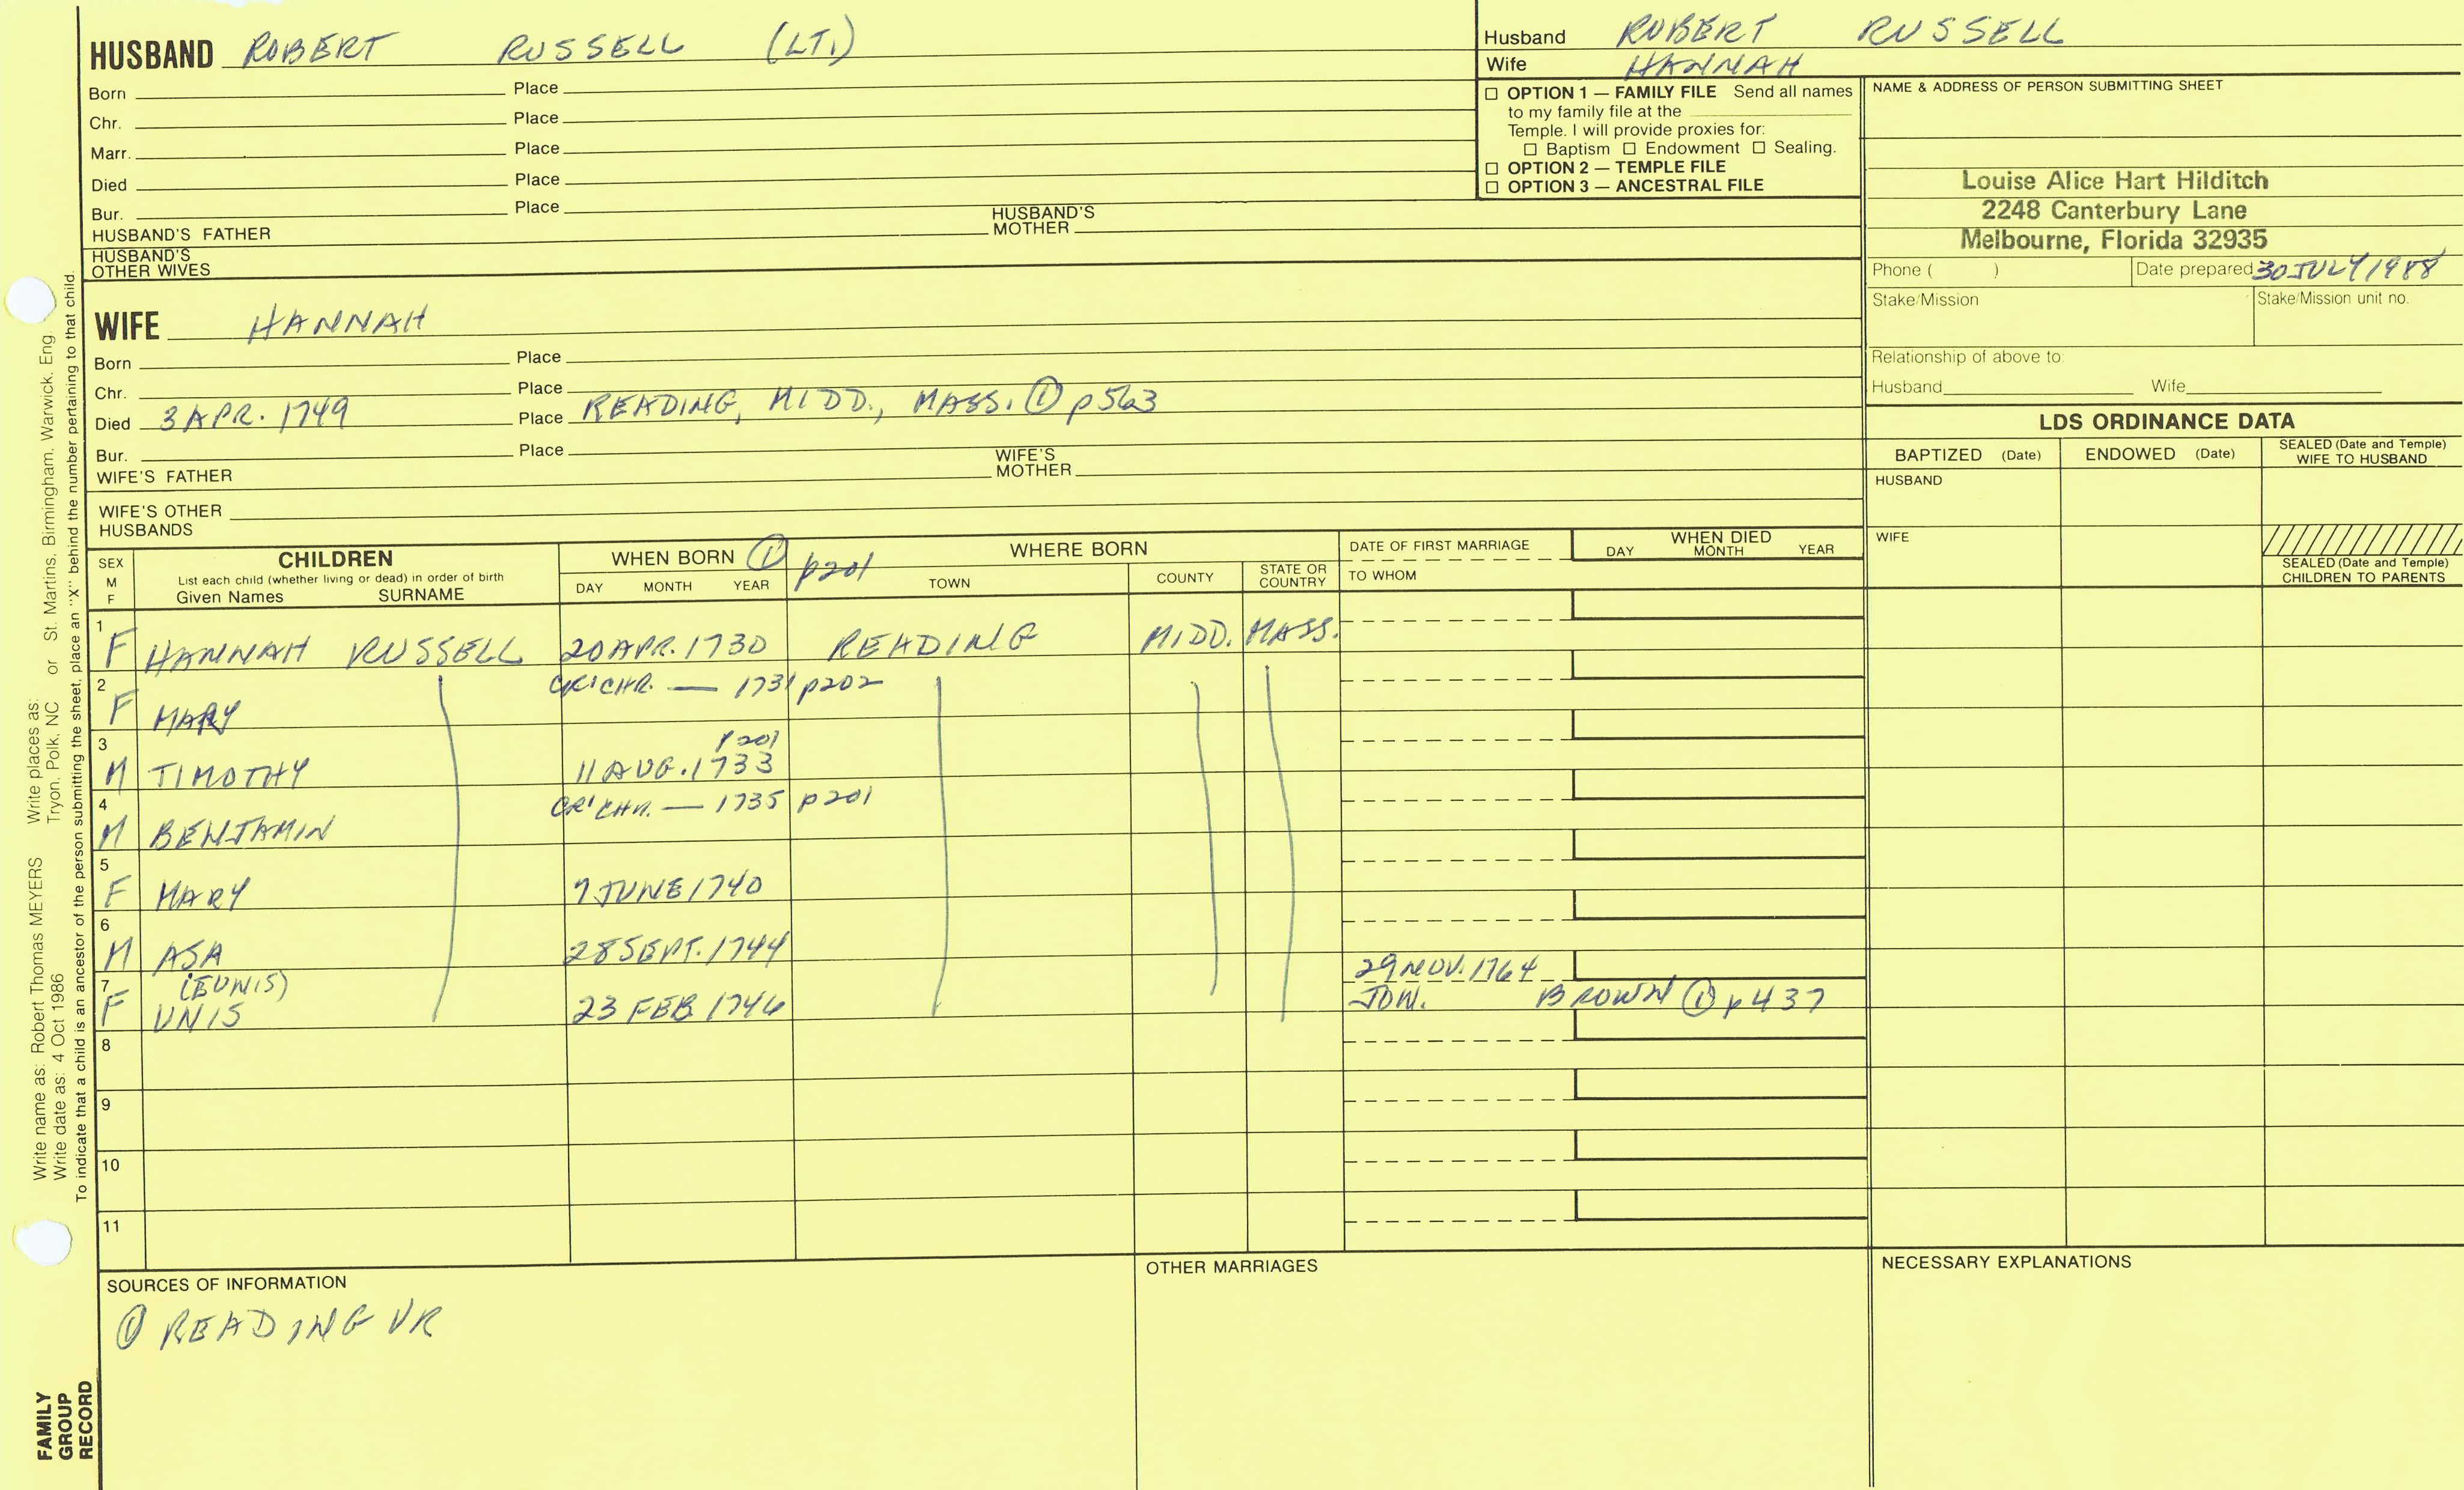 HUSBAND ROBERT RUSSELL (LT.)
Born Place
Chr. Place
Marr. Place
Died Place
Bur. Place
HUSBAND'S FATHER HUSBAND'S MOTHER
HUSBAND'S OTHER WIVES
Husband ROBERT RUSSELL
Wife HANNAH
☐ OPTION 1 — FAMILY FILE Send all names
to my family file at the
Temple. I will provide proxies for:
☐ Baptism ☐ Endowment ☐ Sealing.
☐ OPTION 2 — TEMPLE FILE
☐ OPTION 3 — ANCESTRAL FILE
NAME & ADDRESS OF PERSON SUBMITTING SHEET
Louise Alice Hart Hilditch
2248 Canterbury Lane
Melbourne, Florida 32935
Phone ( ) Date prepared 30 JULY 1988
Stake/Mission Stake/Mission unit no.
Relationship of above to:
Husband Wife
WIFE HANNAH
Born Place
Chr. Place
Died 3 APR. 1749 Place READING, MIDD., MASS. ① p563
Bur. Place
WIFE'S FATHER WIFE'S MOTHER
WIFE'S OTHER HUSBANDS
LDS ORDINANCE DATA
BAPTIZED (Date) ENDOWED (Date) SEALED (Date and Temple) WIFE TO HUSBAND
HUSBAND
WIFE
SEALED (Date and Temple) CHILDREN TO PARENTS
SEX M F
CHILDREN
List each child (whether living or dead) in order of birth
Given Names SURNAME
WHEN BORN ① p201
DAY MONTH YEAR
WHERE BORN
TOWN COUNTY STATE OR COUNTRY
DATE OF FIRST MARRIAGE
TO WHOM
WHEN DIED
DAY MONTH YEAR
1 F HANNAH RUSSELL 20 APR. 1730 READING MIDD. MASS.
2 F MARY CR1 CHR. — 1731 p202
3 M TIMOTHY p201 11 AUG. 1733
4 M BENJAMIN CR1 CHR. — 1735 p201
5 F MARY 7 JUNE 1740
6 M ASA 28 SEPT. 1744
7 F (EUNIS) UNIS 23 FEB 1746 29 NOV. 1764
JON. BROWN ① p437
8
9
10
11
SOURCES OF INFORMATION
① READING VR
OTHER MARRIAGES
NECESSARY EXPLANATIONS
Write name as: Robert Thomas MEYERS Write places as:
Write date as: 4 Oct 1986 Tryon, Polk, NC or St. Martins, Birmingham, Warwick, Eng
To indicate that a child is an ancestor of the person submitting the sheet, place an "X" behind the number pertaining to that child.
FAMILY
GROUP
RECORD